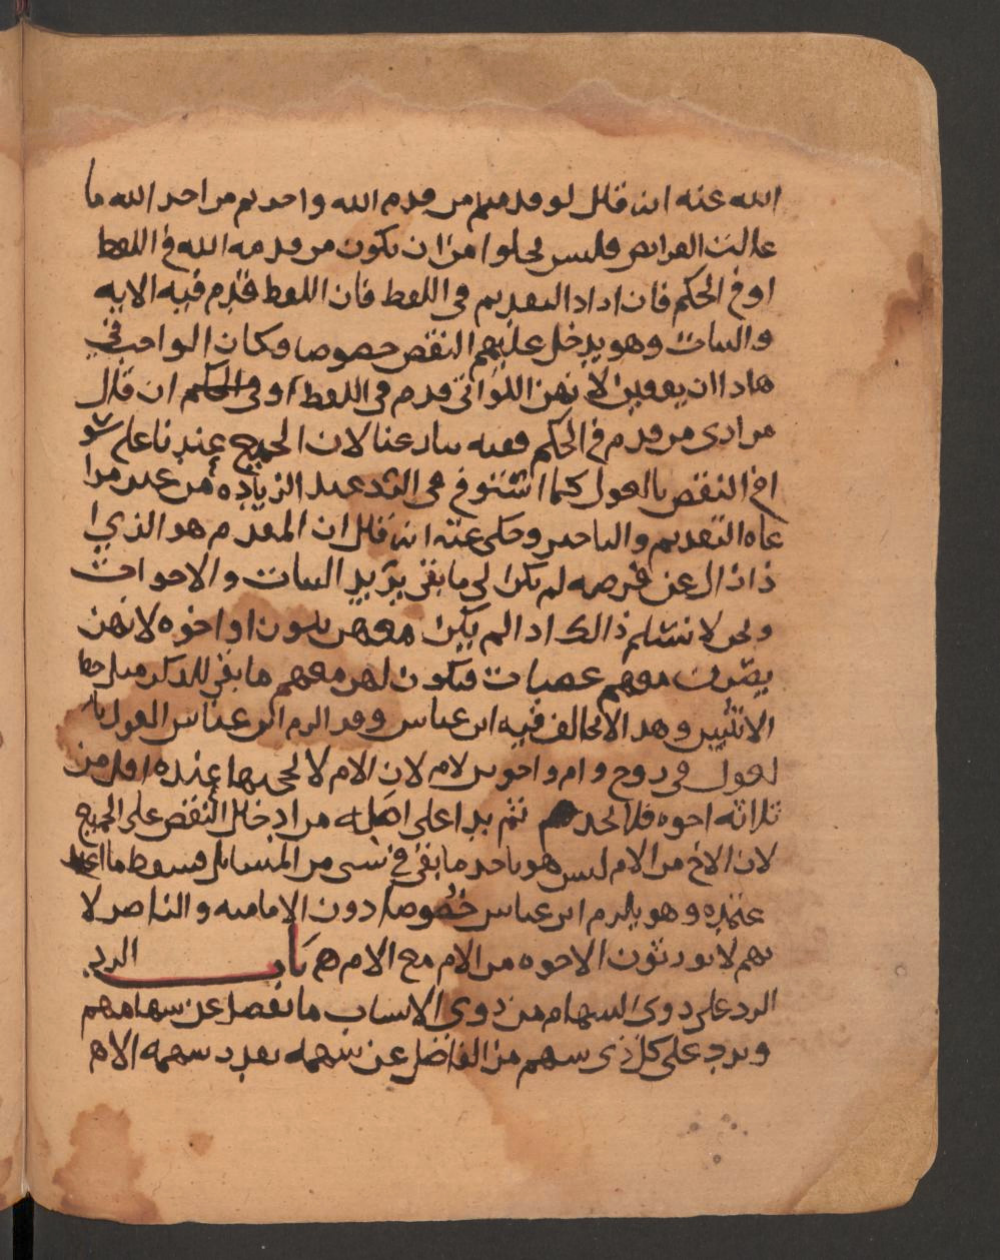 الله عنه انه قال لو قدمتم من قدم الله واخرتم من اخر الله ما
عالت الفرايض فليس يخلوا من ان يكون من قدمه الله في اللفظ
او في الحكم فان اراد التقديم في اللفظ فان اللفظ قدم فيه الابه
والبنات وهو يدخل عليهم النقص خصوصا وكان الواجب في
هاذا ان يعفين لانهن اللواتي قدم في اللفظ او في الحكم ان قال
مرادي من قدم في الحكم ففيه تنازعنا لان الجميع عندنا على سو
ا في النقص بالعول كما استتو في الرد عند الزيادة من غير مرا
عاه التقديم والتاخير وحكي عنه انه قال ان المقدم هو الذي ا
ذا زال عن فرضه لم يكن الى ما بقي يريد البنات والاخوات
ونحن لا نسلم ذالك اذا لم يكن معهن بنون او اخوه لانهن
يصرن معهم عصبات فيكون لهن معهم ما بقي للذكر مثل حظ
الانثيين وهذا لا يخالف فيه ابن عباس وقد الزم ابن عباس القول با
لعول في زوج وام واخوين لام لان الام لا يحجبها عنده اقل من
ثلاثه اخوه فلا يجد ثم بدا على اصله من ادخال النقص على الجميع
لان الاخ من الام ليس هو ياخذ ما بقي في شي من المسايل فسقط ما اعتد
عنده وهو يلزم ابن عباس خصوصا دون الاماميه والناصر لا
نهم لا يورثون الاخوه من الام مع الام باب الرد
الرد على ذوي السهام من ذوي الانساب ما يفضل عن سهامهم
ويرد على كل ذي سهم من الفاضل عن سهمه بقدر سهمه الاهـ